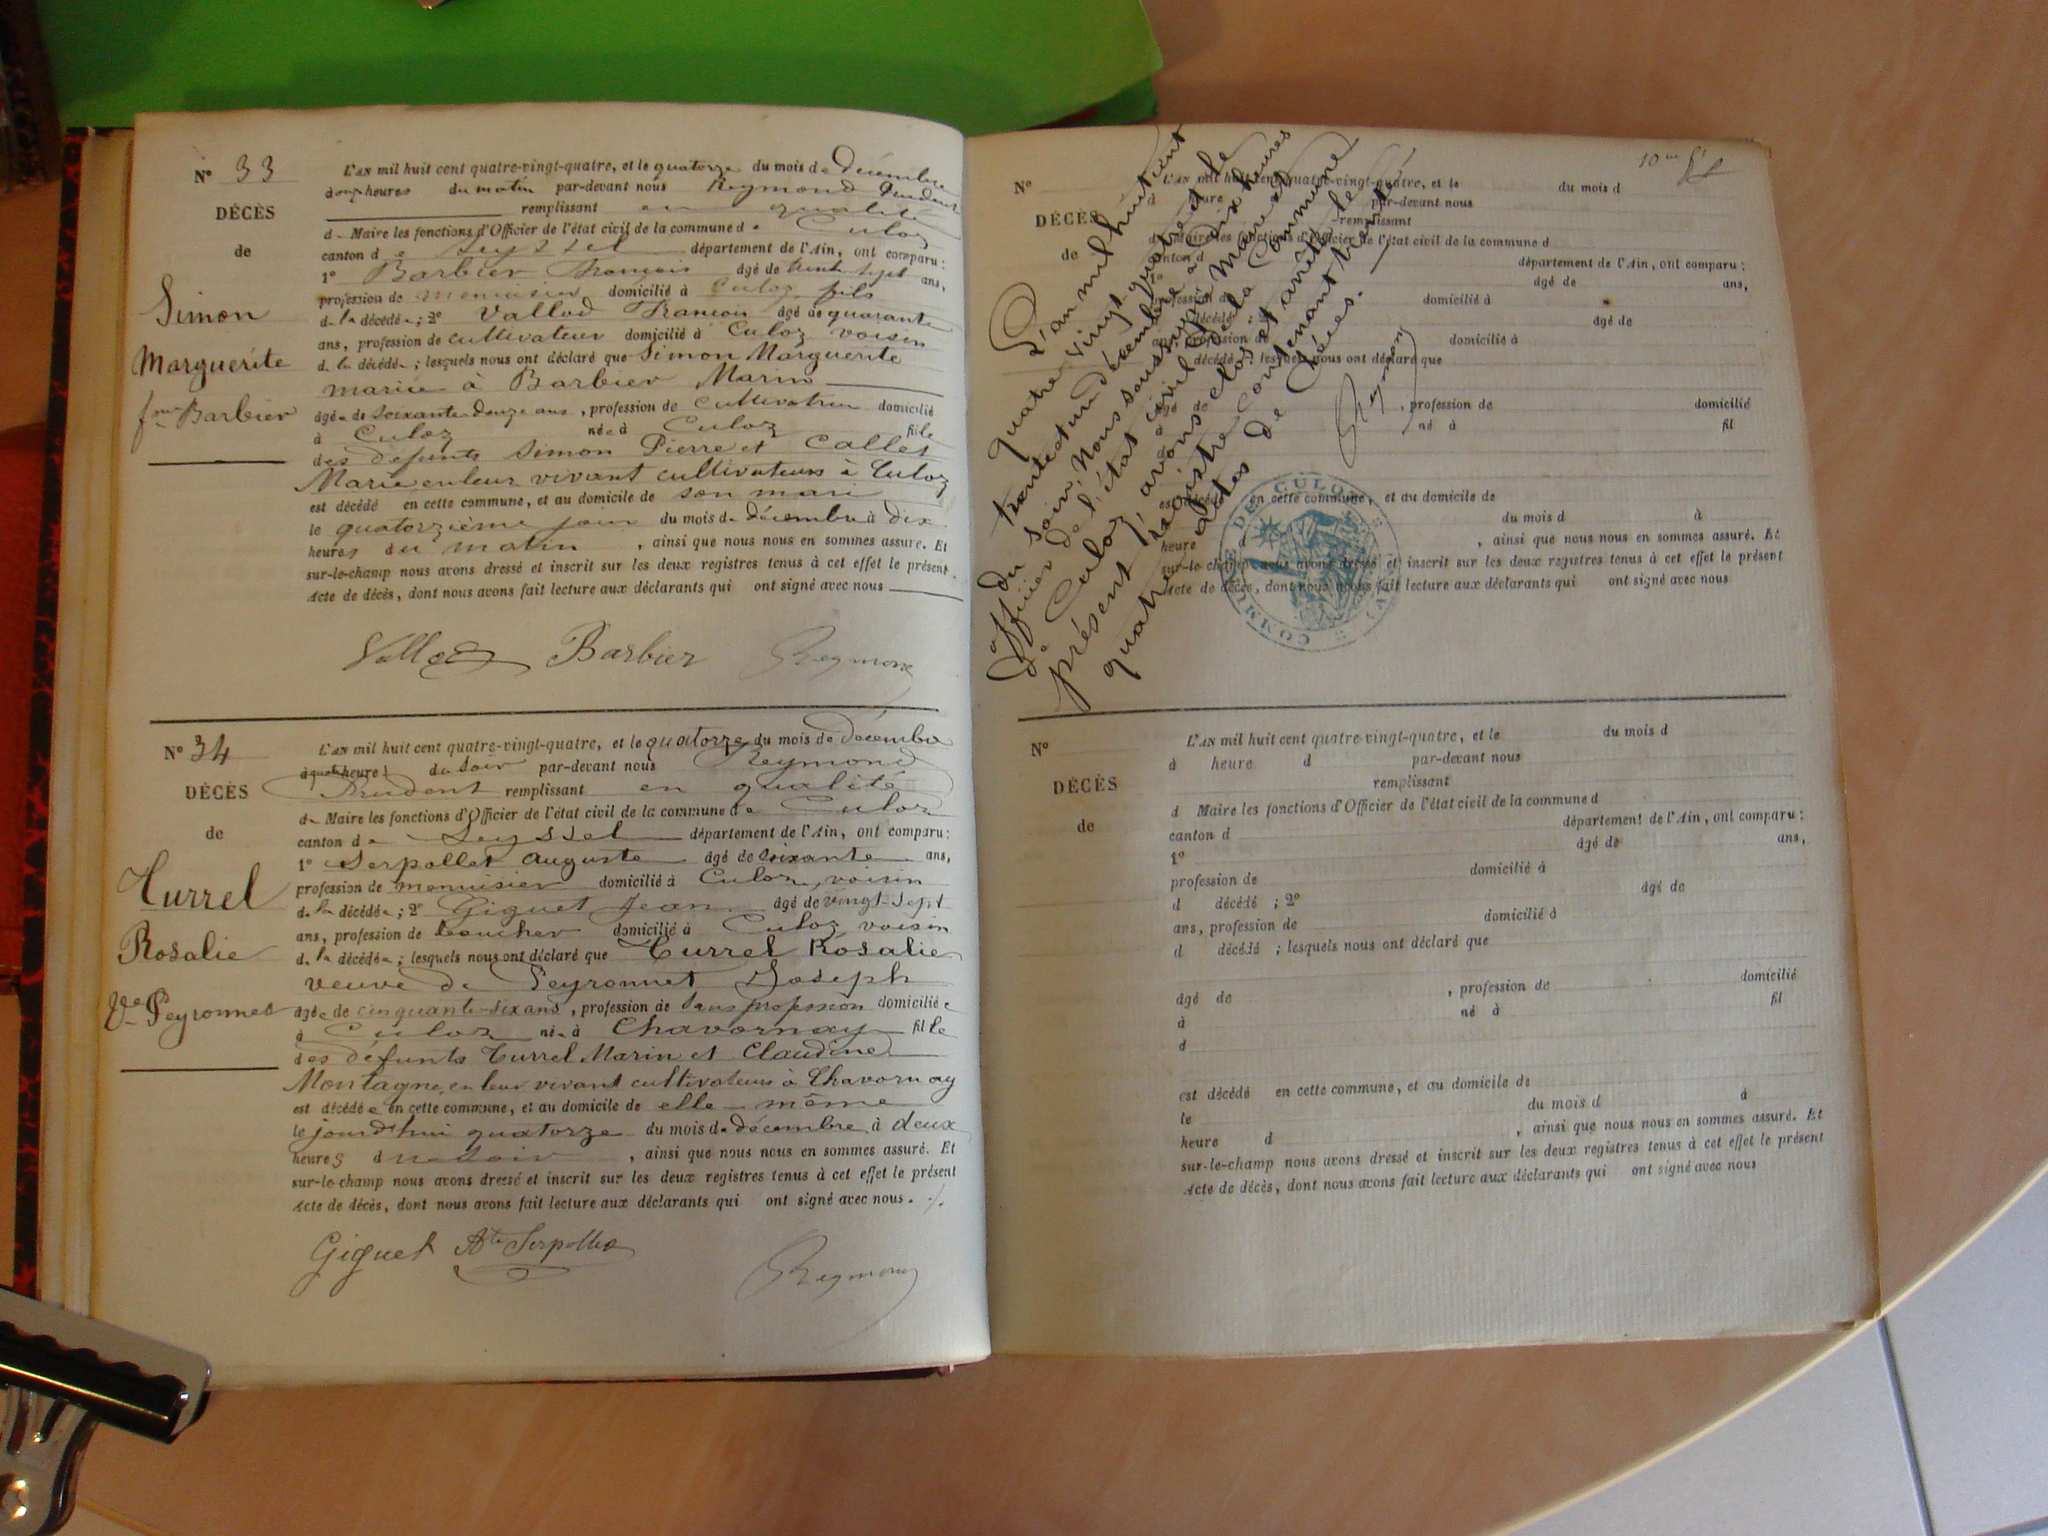 N° 33
DÉCÈS
de
Simon
Marguerite
fme Barbier
L'AN mil huit cent quatre-vingt-quatre, et le quatorze du mois de décembre
à onze heures du matin par-devant nous Reymond Prudent
remplissant en qualité
de Maire les fonctions d'Officier de l'état civil de la commune de Culoz
canton de Seyssel département de l'Ain, ont comparu :
1° Barbier François âgé de trente sept ans,
profession de menuisier domicilié à Culoz fils
de la décédée ; 2° Vallod François âgé de quarante
ans, profession de cultivateur domicilié à Culoz voisin
de la décédée ; lesquels nous ont déclaré que Simon Marguerite
mariée à Barbier Marin
âgée de soixante douze ans, profession de cultivatrice domicilié
à Culoz née à Culoz fille
des défunts Simon Pierre et Callet
Marie en leur vivant cultivateurs à Culoz
est décédé en cette commune, et au domicile de son mari
le quatorzième jour du mois de décembre à dix
heures du matin, ainsi que nous nous en sommes assuré. Et
sur-le-champ nous avons dressé et inscrit sur les deux registres tenus à cet effet le présent
Acte de décès, dont nous avons fait lecture aux déclarants qui ont signé avec nous
Vallod Barbier Reymond
N° 34
DÉCÈS
de
Turrel
Rosalie
Vve Peyronnet
L'AN mil huit cent quatre-vingt-quatre, et le quatorze du mois de décembre
à quatre heures du soir par-devant nous Reymond
Prudent remplissant en qualité
de Maire les fonctions d'Officier de l'état civil de la commune de Culoz
canton de Seyssel département de l'Ain, ont comparu :
1° Serpollet Auguste âgé de soixante ans,
profession de menuisier domicilié à Culoz, voisin
de la décédée ; 2° Giguet Jean âgé de vingt-sept
ans, profession de boucher domicilié à Culoz voisin
de la décédée ; lesquels nous ont déclaré que Turrel Rosalie
veuve de Peyronnet Joseph
âgée de cinquante-six ans, profession de sans profession domiciliée
à Culoz née à Chavornay fille
des défunts Turrel Marin et Claudine
Montagne, en leur vivant cultivateurs à Chavornay
est décédée en cette commune, et au domicile de elle-même
le jourd'hui quatorze du mois de décembre à deux
heures du soir, ainsi que nous nous en sommes assuré. Et
sur-le-champ nous avons dressé et inscrit sur les deux registres tenus à cet effet le présent
Acte de décès, dont nous avons fait lecture aux déclarants qui ont signé avec nous.
Giguet Ate Serpollet
Reymond
10me
N°
DÉCÈS
de
L'AN mil huit cent quatre-vingt-quatre, et le du mois d
à heure par-devant nous
remplissant
d Maire les fonctions d'Officier de l'état civil de la commune d
canton d département de l'Ain, ont comparu :
1° âgé de ans,
profession de domicilié à
d décédé ; 2° âgé de
ans, profession de domicilié à
d décédé ; lesquels nous ont déclaré que
âgé de , profession de domicilié
à né à fil
d
est décédé en cette commune, et au domicile de
du mois d à
heure d , ainsi que nous nous en sommes assuré. Et
sur-le-champ nous avons dressé et inscrit sur les deux registres tenus à cet effet le présent
Acte de décès, dont nous avons fait lecture aux déclarants qui ont signé avec nous
L'an mil huit cent
quatre-vingt-quatre et le
trente et un décembre à dix heures
du soir, Nous soussigné Maire et
officier de l'état civil de la Commune
de Culoz, avons clos et arrêté le
présent registre contenant trente
quatre actes de décès.
Reymond
COMMUNE DE CULOZ
N°
DÉCÈS
de
L'AN mil huit cent quatre-vingt-quatre, et le du mois d
à heure d par-devant nous
remplissant
d Maire les fonctions d'Officier de l'état civil de la commune d
canton d département de l'Ain, ont comparu :
1° âgé de ans,
profession de domicilié à
d décédé ; 2° âgé de
ans, profession de domicilié à
d décédé ; lesquels nous ont déclaré que
âgé de , profession de domicilié
à né à fil
d
est décédé en cette commune, et au domicile de
le du mois d à
heure d , ainsi que nous nous en sommes assuré. Et
sur-le-champ nous avons dressé et inscrit sur les deux registres tenus à cet effet le présent
Acte de décès, dont nous avons fait lecture aux déclarants qui ont signé avec nous